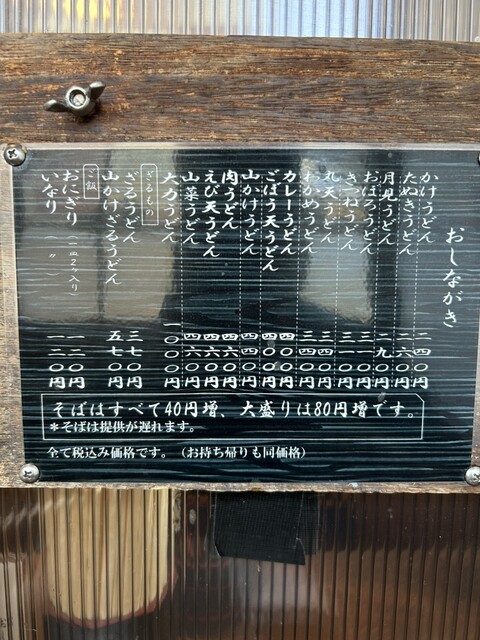 おしながき
かけうどん 二四〇円
たぬきうどん 二六〇円
月見うどん 二九〇円
おぼろうどん 三一〇円
きつねうどん 三一〇円
丸天うどん 三四〇円
わかめうどん 三四〇円
カレーうどん 四〇〇円
ごぼう天うどん 四〇〇円
山かけうどん 四四〇円
肉うどん 四六〇円
えび天うどん 四六〇円
山菜うどん 四六〇円
大力うどん 一〇〇〇円
ざるもの
ざるうどん 三七〇円
山かけざるうどん 五七〇円
ご飯
おにぎり (一皿2ヶ入り) 一二〇円
いなり ( 〃 ) 一二〇円
そばはすべて40円増、大盛りは80円増です。
＊そばは提供が遅れます。
全て税込み価格です。（お持ち帰りも同価格）